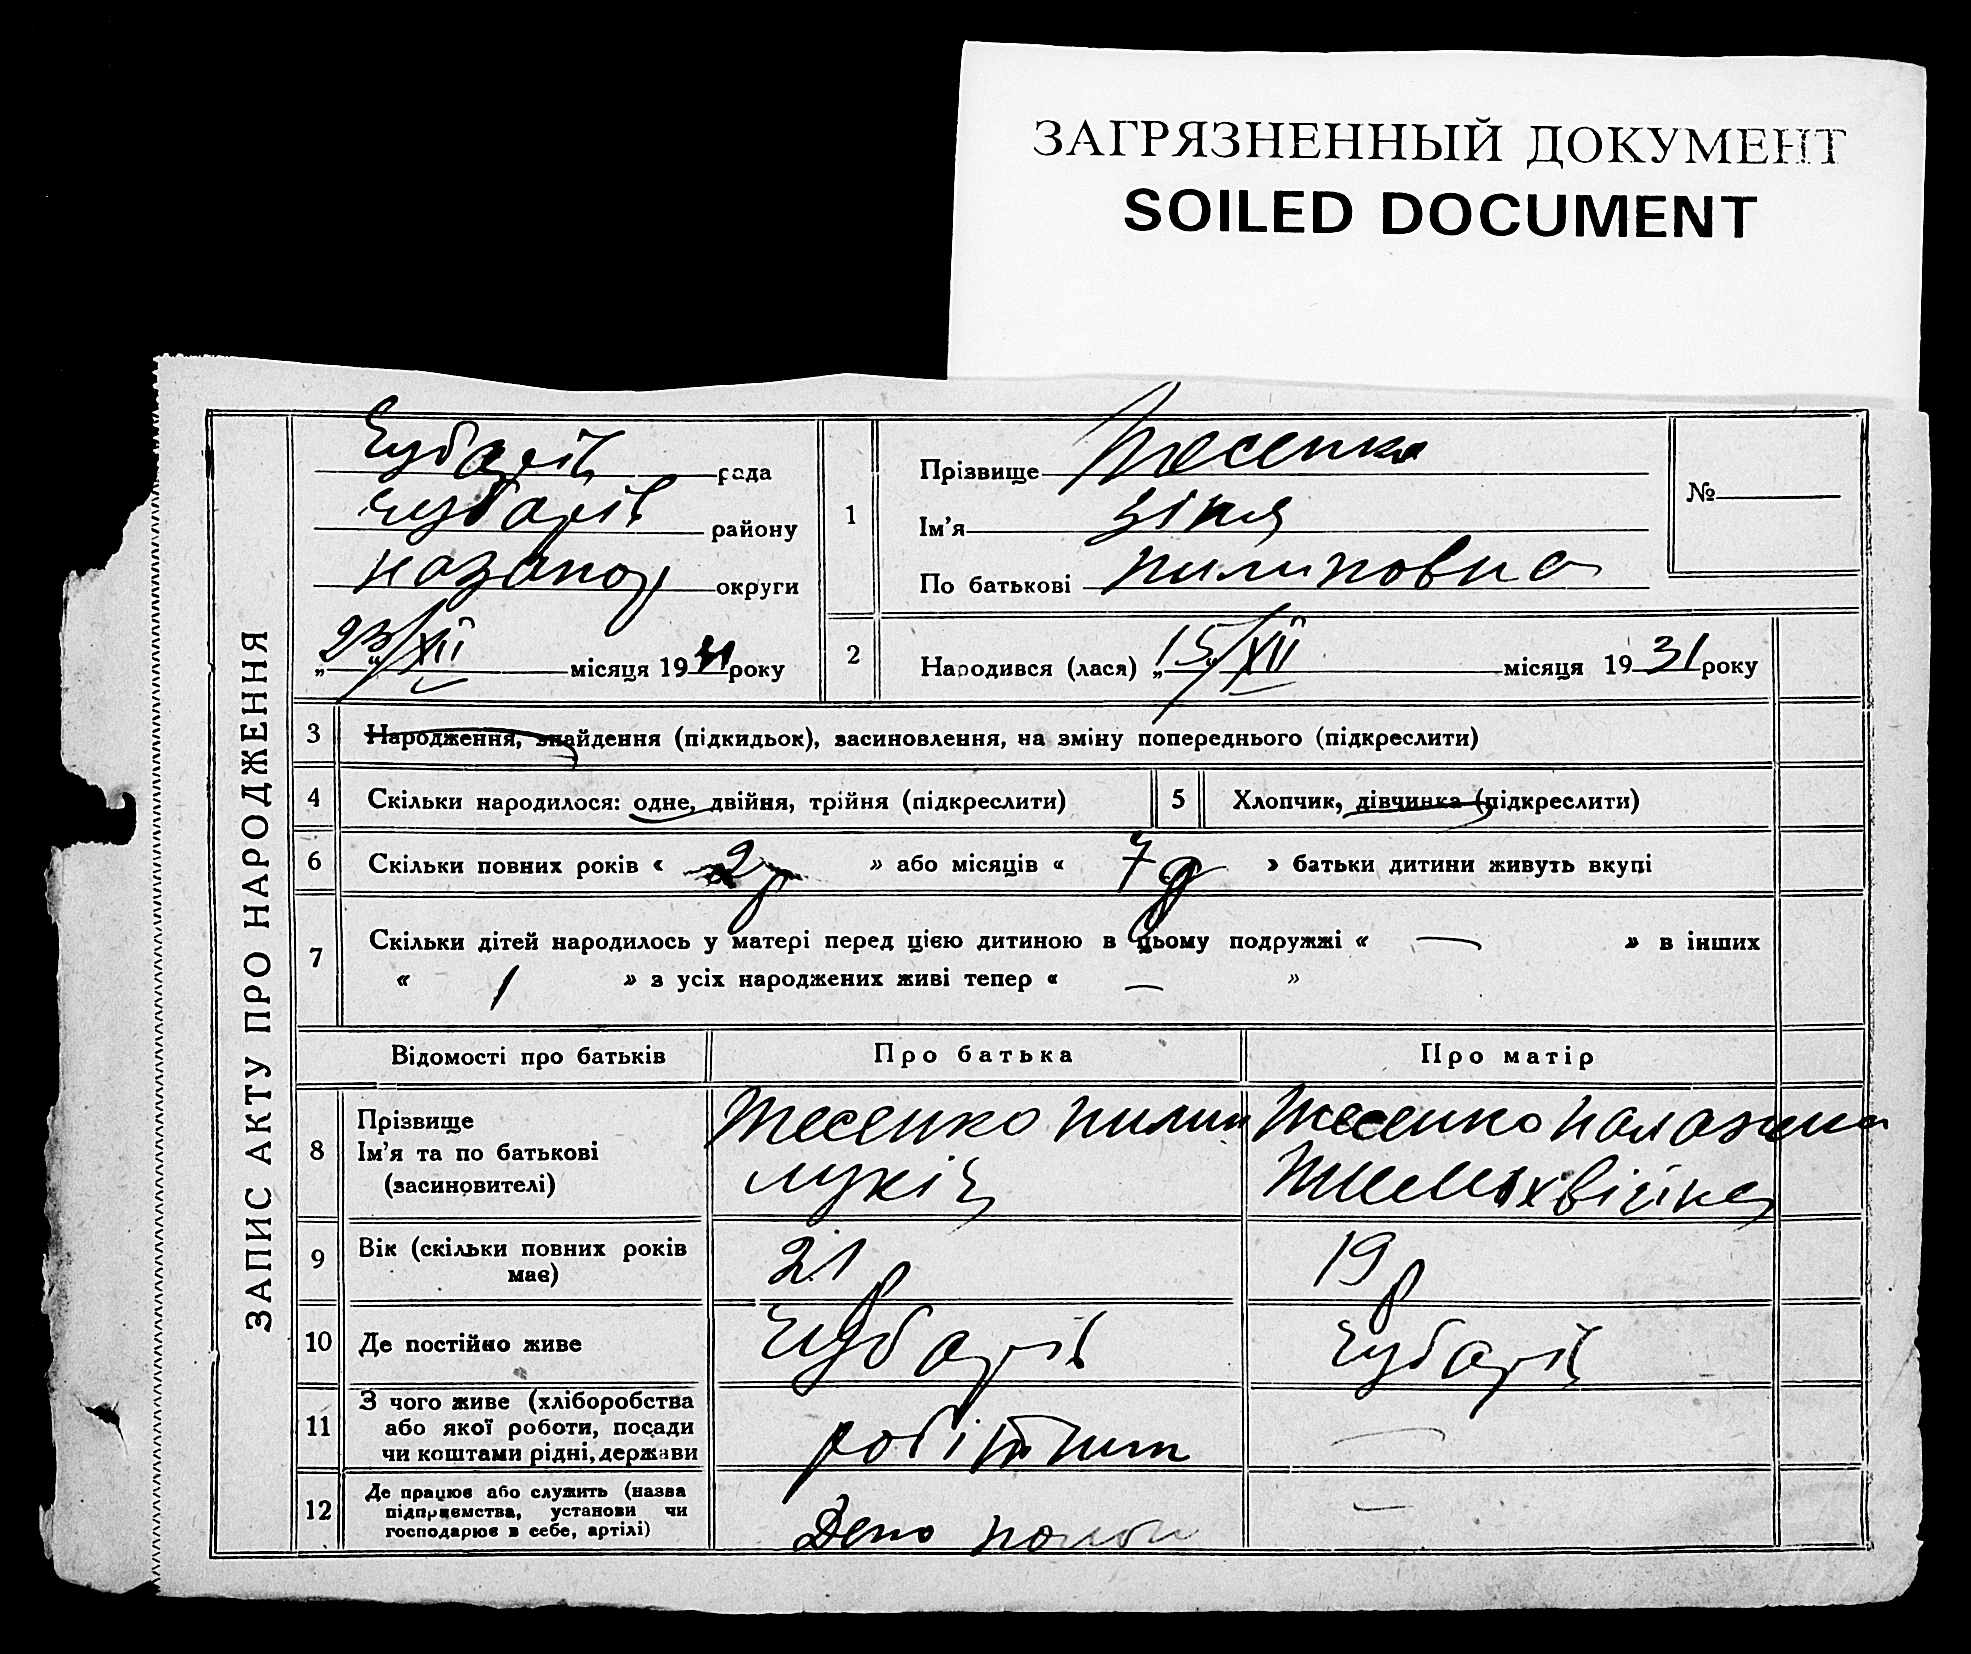 ЗАГРЯЗНЕННЫЙ ДОКУМЕНТ
SOILED DOCUMENT
ЗАПИС АКТУ ПРО НАРОДЖЕННЯ
Чубарів рада
Чубарів району
округи
„23/XII місяця 1931 року
1
Прізвище Тесенко
Ім'я Зіна
По батькові Пилиповна
№
2 Народився (лася) „15/XII місяця 1931 року
3 Народження, знайдення (підкидьок), засиновлення, на зміну попереднього (підкреслити)
4 Скільки народилося: одне, двійня, трійня (підкреслити)
5 Хлопчик, дівчинка (підкреслити)
6 Скільки повних років « 2р » або місяців « 7 » батьки дитини живуть вкупі
7 Скільки дітей народилось у матері перед цією дитиною в цьому подружжі « — » в інших
« 1 » з усіх народжених живі тепер « — »
Відомості про батьків Про батька Про матір
8 Прізвище
Ім'я та по батькові
(засиновителі)
Тесенко Пилип
Лукіч
Тесенко
9 Вік (скільки повних років
має)
21 р
19 р
10 Де постійно живе Чубарів Чубарів
11 З чого живе (хліборобства
або якої роботи, посади
чи коштами рідні, держави
робітник
—
12 Де працює або служить (назва
підприємства, установи чи
господарює в себе, артілі)
Депо
—